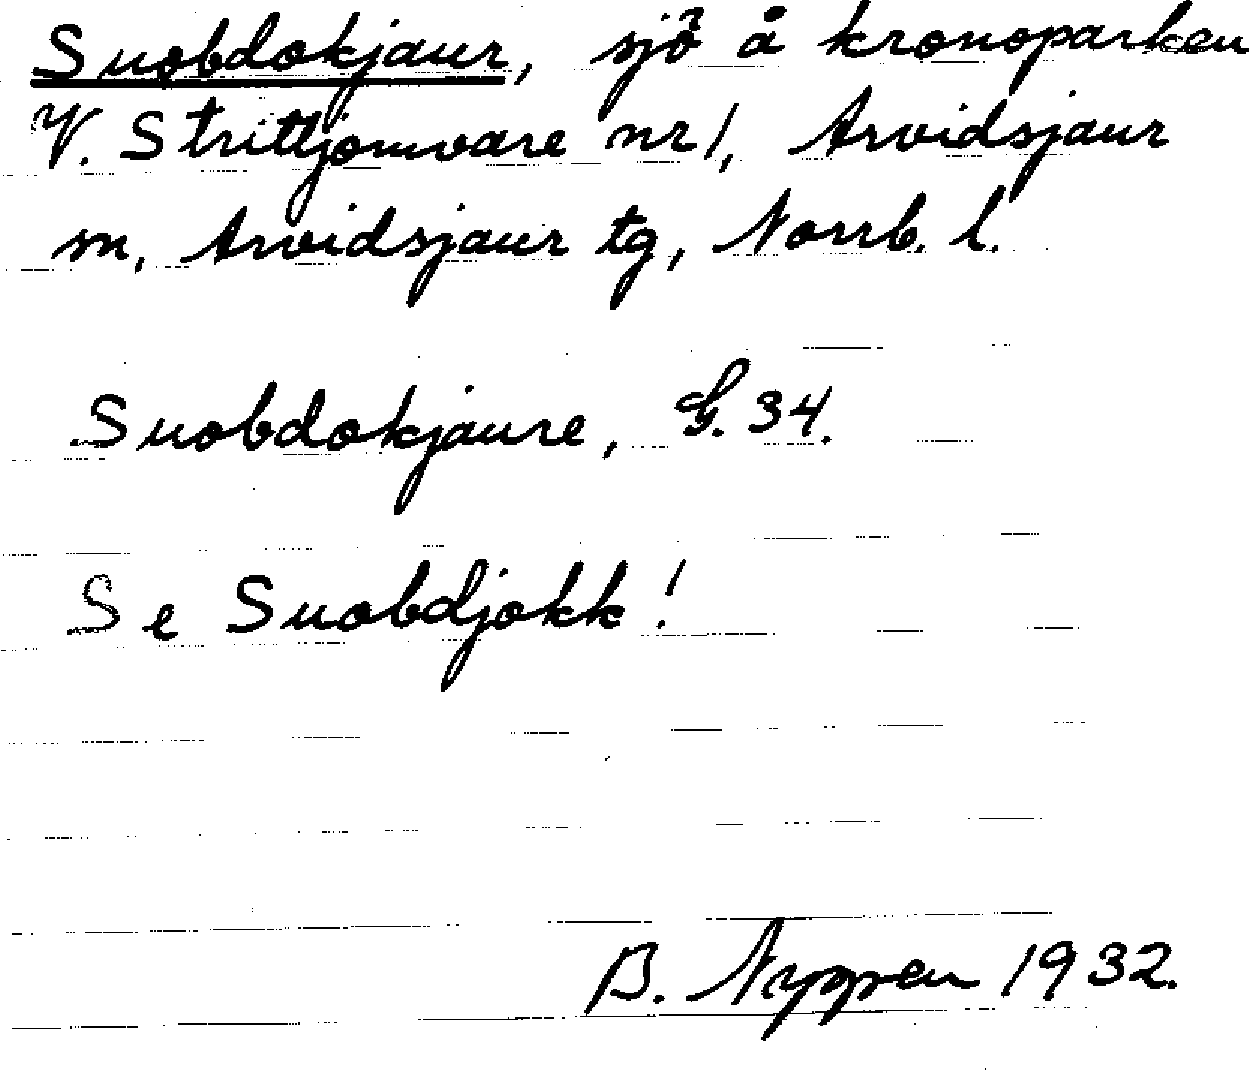 Suobdokjaur, sjö å kronoparken
V. Strittjomvare nr 1, Arvidsjaur
sn, Arvidsjaur tg, Norrb. l.
Suobdokjaure, G. 34.
Se Suobdjokk!
B. Nyppen 1932.